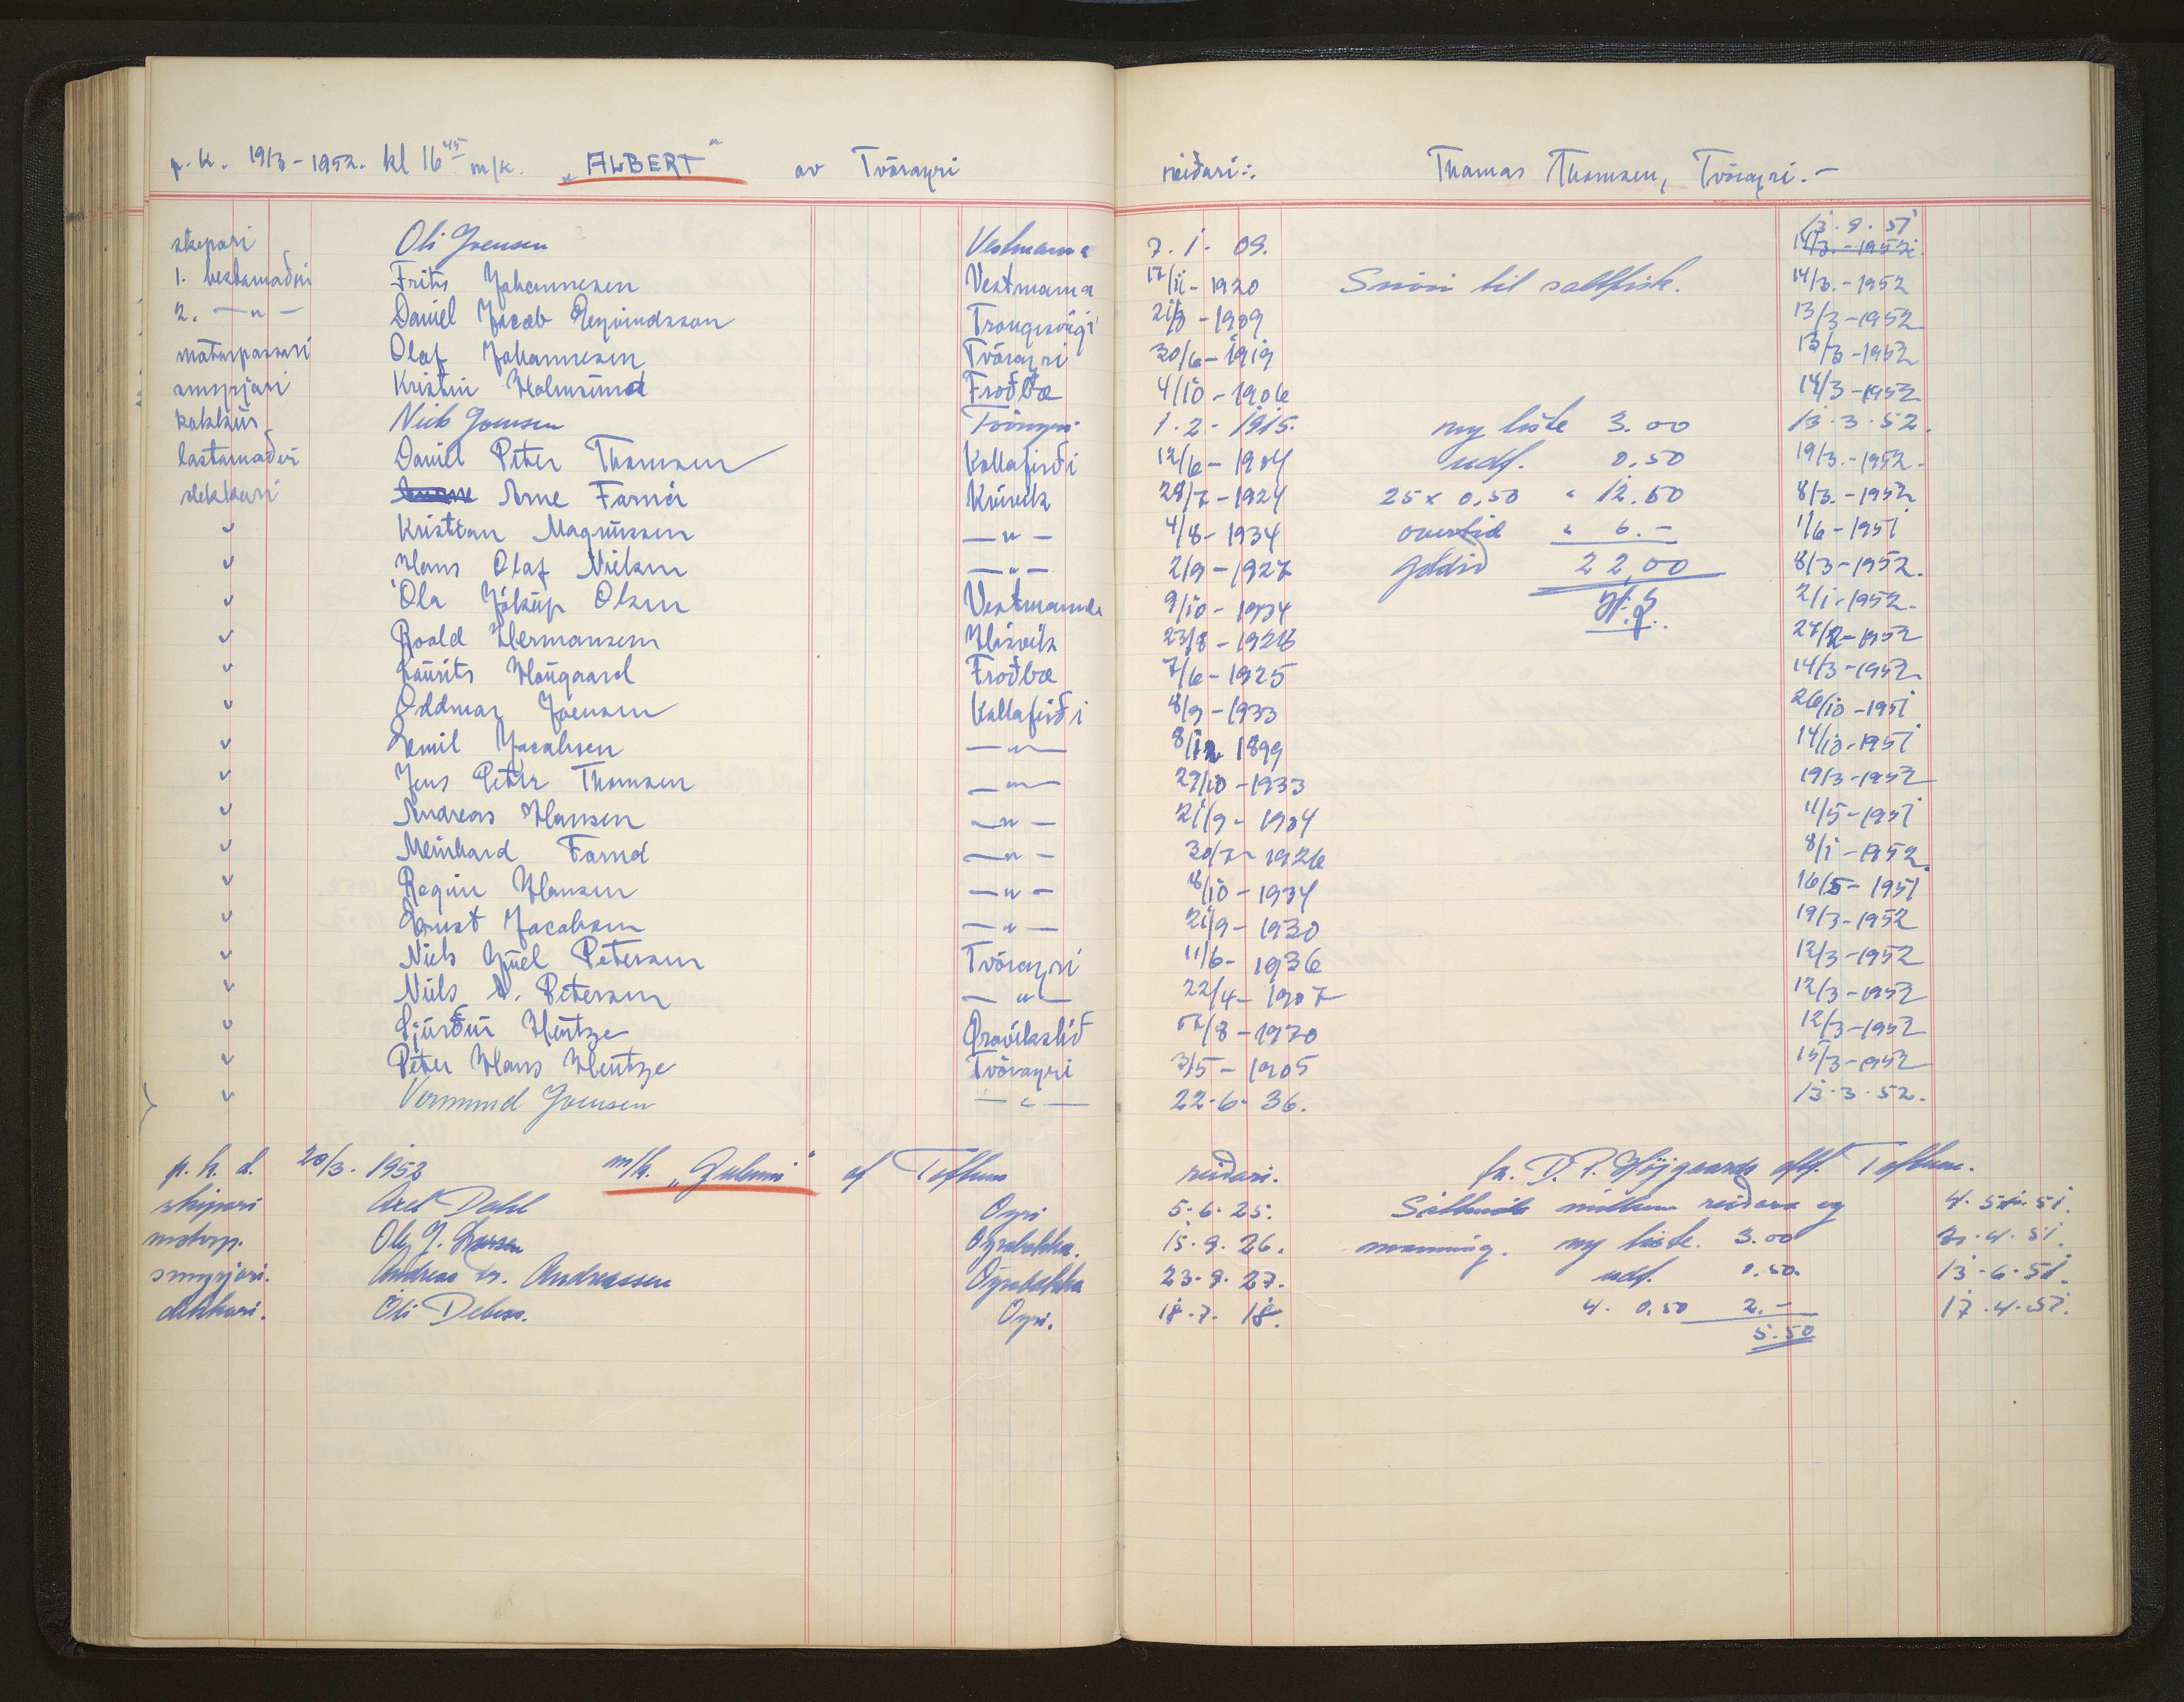 p. k. 19/3-1952. kl 16 45 m/k. „ALBERT“ av Tvöroyri reiðari:. Thomas Thomsen, Tvöroyri.-
skipari Oli Joensen Vestmanna 7. 1. 09. 13.9.51
14/3.-1952.
1. bestamaðvi Frits Johannesen Vestmanna 17/11-1920 Snini til saltfisk. 14/3.-1952
2. -"- Daniel Jacob Eyvindsson Trongisvági 21/8-1909 13/3-1952
motorpassari Olaf Johannesen Tvöroyri 30/6-1919 13/3-1952
smyrjari Kristin Holmsund Froðbæ 4/10-1906 14/3-1952
kokkur Niels Joensen Tvöroyri 1.2-1915. ny liste 3.00 13.3.52.
lastamaðvi Daniel Peter Thomsen Kollafirði 12/6-1904 udf. 0.50 19/3.-1952.
dekkari Arne Farnir Kvívik 28/7-1924 25 x 0.50 " 12.50 8/3.-1952
" Kristian Magnussen -"- 4/8-1934 overtid " 6.- 1/6-1951
" Hans Olaf Nielsen -"- 2/9-1927 Goldið 22,00 8/3-1952.
" Óla Jákup Olsen Vestmanna 9/10-1934 2/1-1952.
" Roald Hermansen Hósvik 23/8-1928 1952
" Laurits Haugaard Froðbæ 7/6-1925 14/3-1952.
" Oddmar Joensen Kollafirði 8/9-1933 26/10-1951
" Emil Jacobsen -"- 8/12 1899 14/10-1951
" Jens Peter Thomsen -"- 29/10-1933 19/3-1952
" Andreas Hansen -"- 21/9-1904 11/5-1951
" Meinhard Farná -"- 30/7-1926 8/1-1952.
" Regin Hansen -"- 18/10-1934 16/5-1951
" Ernst Jacobsen -"- 21/9-1930 19/3-1952
" Niels Juel Petersen Tvöroyri 11/6-1936 12/3-1952
" Niels A. Petersen -"- 22/4-1907 12/3-1952
" Sjúrður Hentze Øravíkslíð /8-1920 12/3-1952
" Peter Hans Hentze Tvöroyri 3/5-1905 15/3-1952
" Vermund Joensen -"- 22.6.36. 13.3.52.
p. k. d. 20/3. 1952 m/k. „Gulenni“ af Toftum reiðari. fa. D. P. Højgaards eftf. Toftum.
skipari Axel Dahl Oyri 5.6.25. millum reiðara og 4. 51.
motorp. Ole J. Larsen Oyrabakka. 15.9.26. manning. ny liste. 3.00 4.51.
smyrjari. Andreas M. Andreassen Oyrabakka 23.9.27. udf. 0.50. 13.6.51.
dekkari. Óli Debess. Oyri. 18.7.18. 4. 0,50 2.- 17.4.51.
5.50